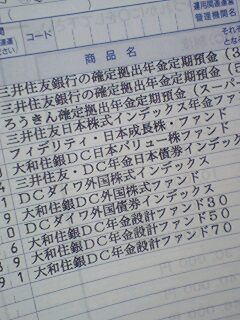 運用関連運
管理機関名
それぞ
となる
コード
商 品 名
三井住友銀行の確定拠出年金定期預金(3
三井住友銀行の確定拠出年金定期預金(5
ろうきん確定拠出年金定期預金(スーパー
三井住友日本株式インデックス年金ファ
フィデリティ・日本成長株・ファンド
大和住銀DC日本バリュー株ファンド
三井住友・DC年金日本債券インデックス
DCダイワ外国株式インデックス
大和住銀DC外国株式ファンド
DCダイワ外国債券インデックス
大和住銀DC年金設計ファンド30
大和住銀DC年金設計ファンド50
大和住銀DC年金設計ファンド70